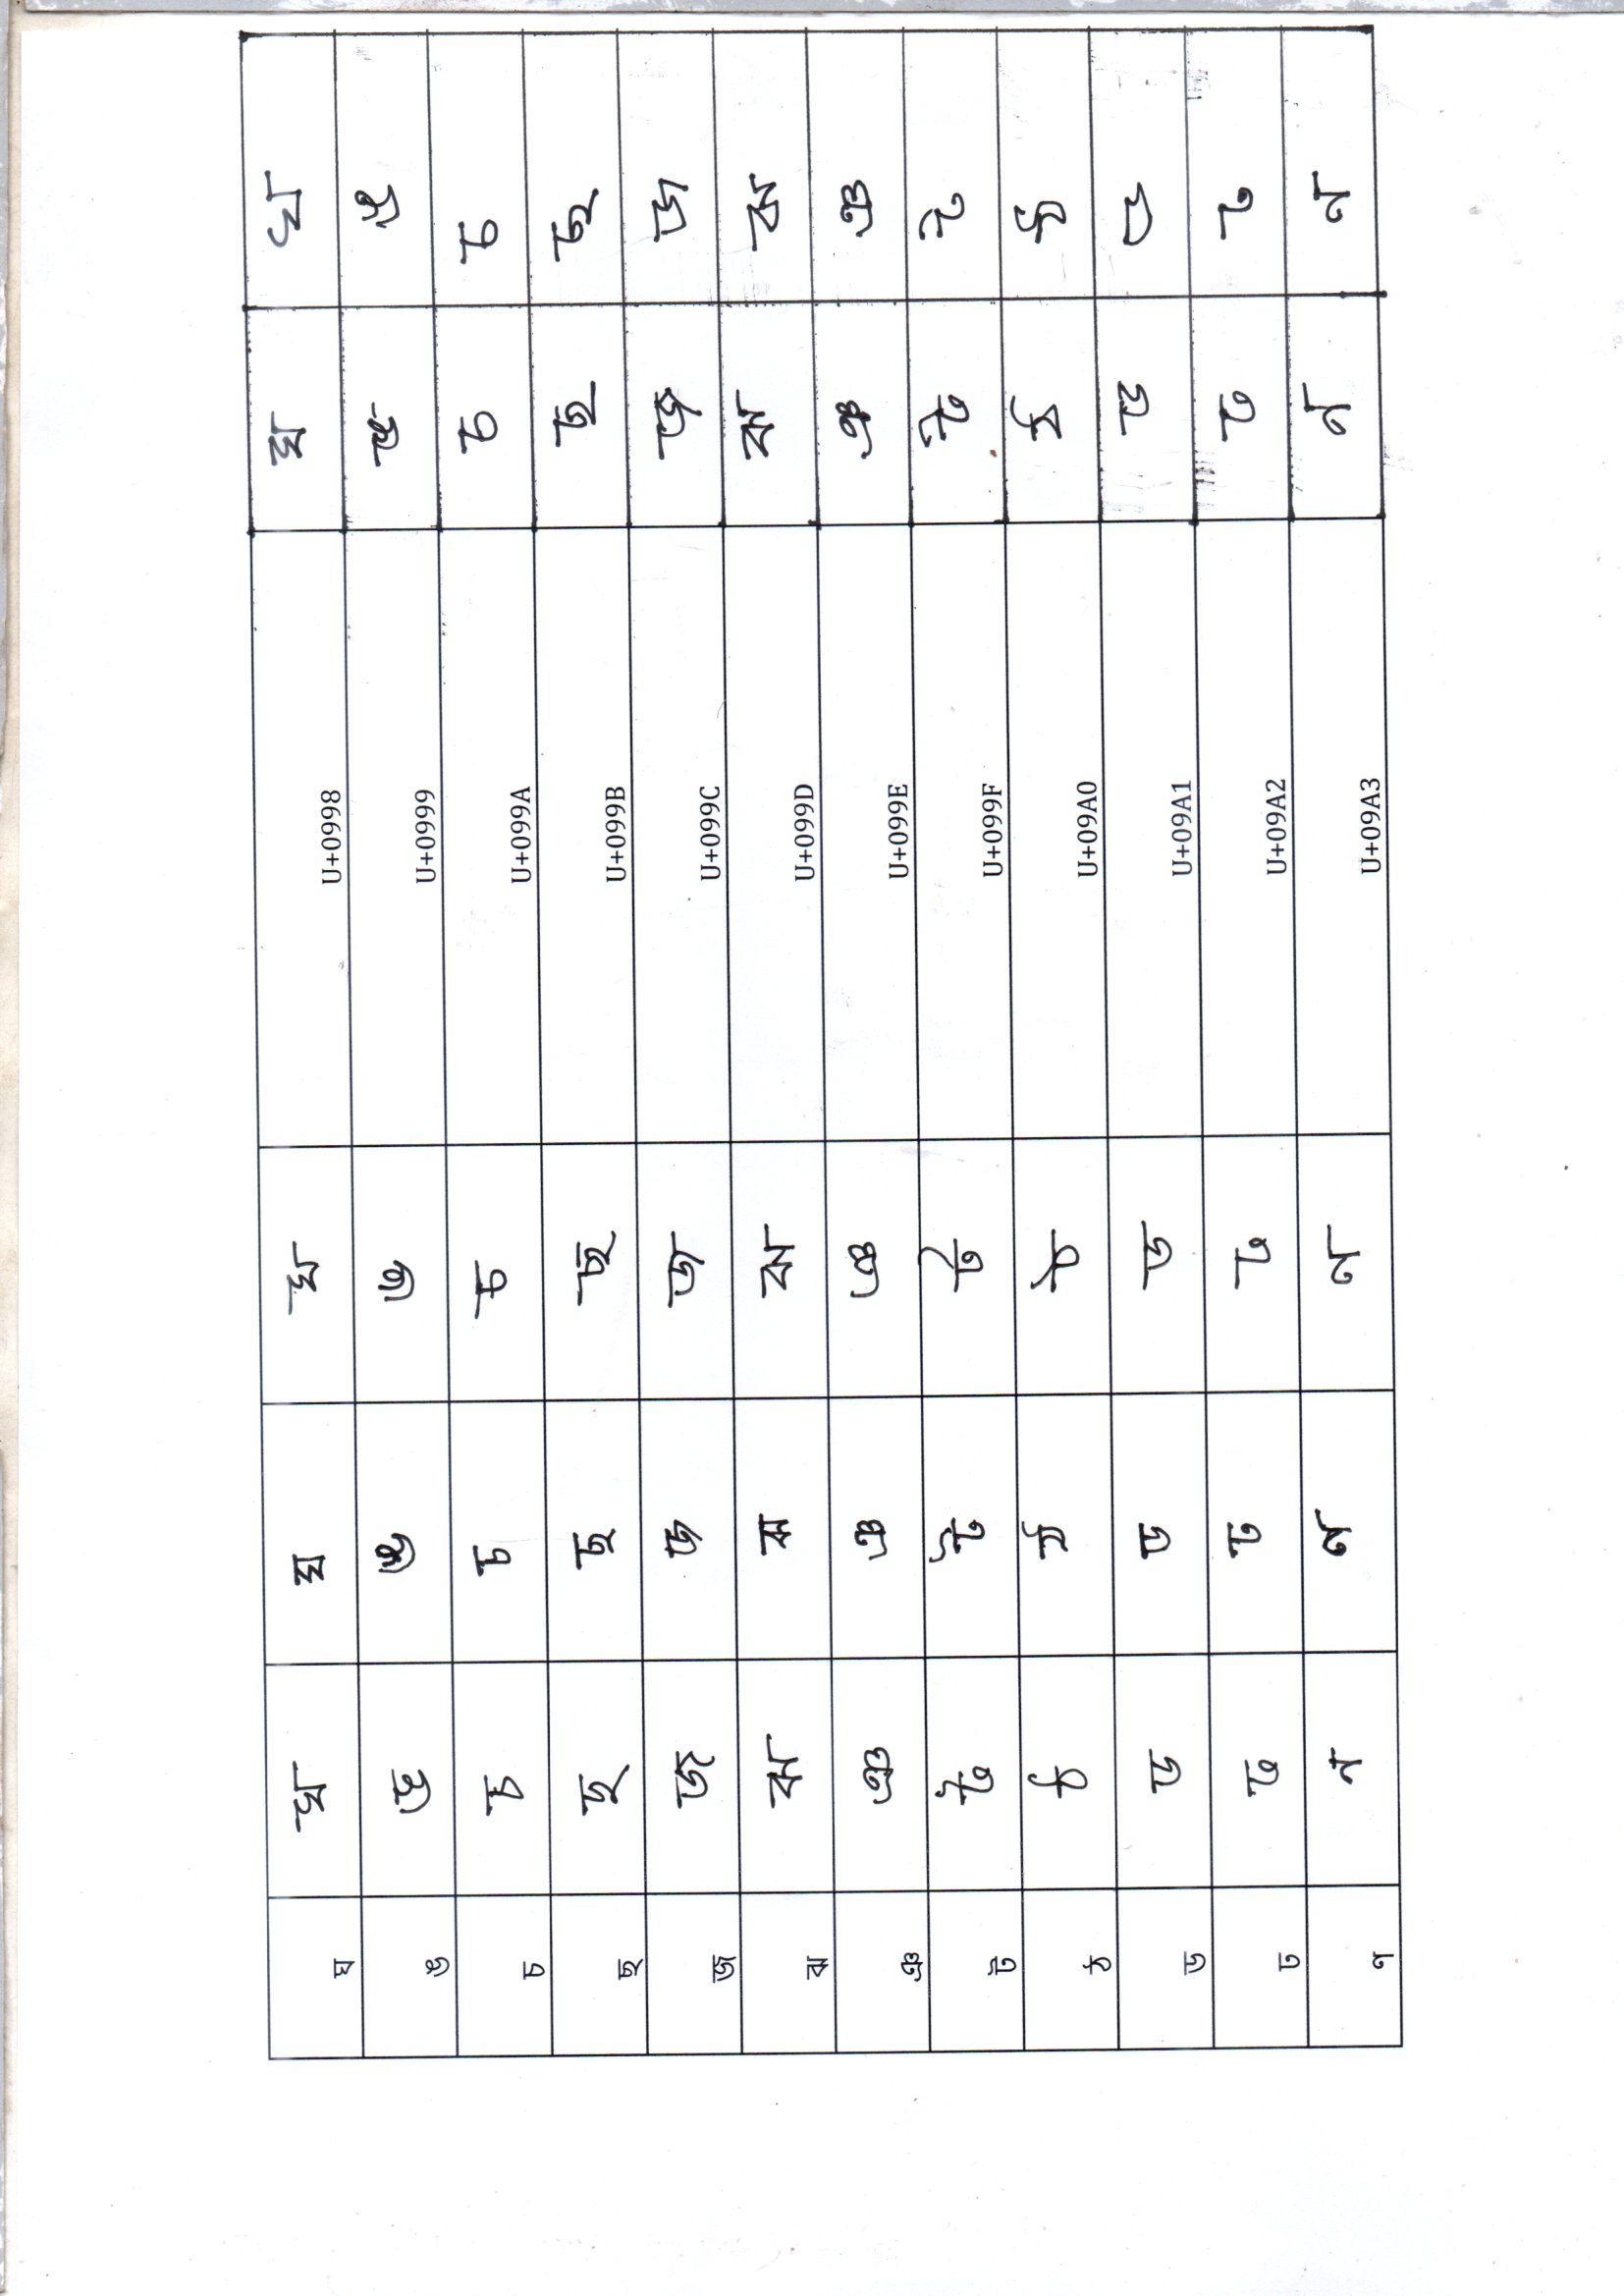 ঘ ঘ ঘ ঘ U+0998 ঘ ঘ
ঙ ঙ ঙ ঙ U+0999 ঙ ঙ
চ চ চ চ U+099A চ চ
ছ ছ ছ ছ U+099B ছ ছ
জ জ জ জ U+099C জ জ
ঝ ঝ ঝ ঝ U+099D ঝ ঝ
ঞ ঞ ঞ ঞ U+099E ঞ ঞ
ট ট ট ট U+099F ট ট
ঠ ঠ ঠ ঠ U+09A0 ঠ ঠ
ড ড ড ড U+09A1 ড ড
ঢ ঢ ঢ ঢ U+09A2 ঢ ঢ
ণ ণ ণ ণ U+09A3 ণ ণ